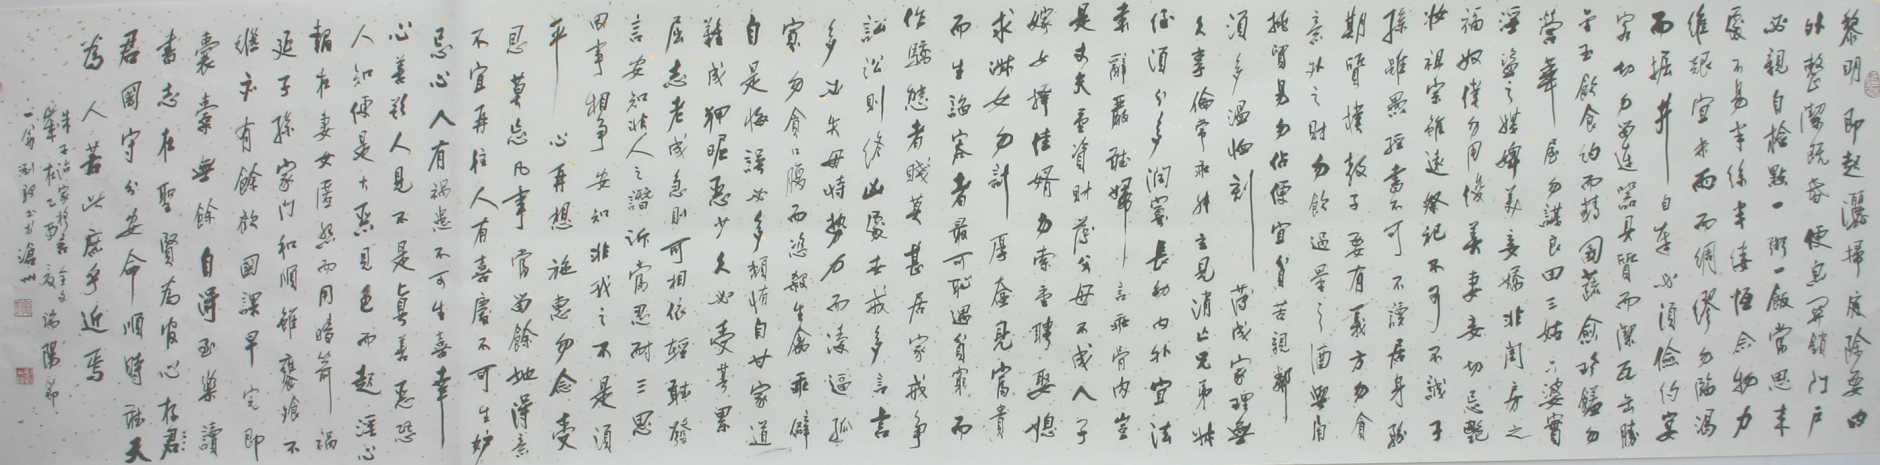 黎明即起灑掃庭除要內
外整潔既昏便息關鎖門戶
必親自檢點一粥一飯當思來
處不易半絲半縷恒念物力
維艱宜未雨而綢繆勿臨渴
而掘井自奉必須儉約宴
客切勿留連器具質而潔瓦缶勝
金玉飲食約而精園蔬愈珍饈勿
營華屋勿謀良田三姑六婆實
淫盜之媒婢美妾嬌非閨房之
福奴僕勿用俊美妻妾切忌艷
妝祖宗雖遠祭祀不可不誠子
孫雖愚經書不可不讀居身務
期質樸教子要有義方勿貪
意外之財勿飲過量之酒與肩
挑貿易勿佔便宜貧苦親鄰
須多溫恤刻薄成家理無
久享倫常乖舛立見消亡兄弟叔
侄須分多潤寡長幼內外宜法
肅辭嚴聽婦言乖骨肉豈
是丈夫重資財薄父母不成人子
嫁女擇佳婿勿索重聘娶媳
求淑女勿計厚奩見富貴
而生諂容者最可恥遇貧窮而
作驕態者賤莫甚居家戒爭
訟訟則終凶處世戒多言言
多必失毋恃勢力而凌逼孤
寡勿貪口腹而恣殺生禽乖僻
自是悔誤必多頹惰自甘家道
難成狎昵惡少久必受其累
屈志老成急則可相依輕聽發
言安知非人之譖訴當忍耐三思
因事相爭安知非我之不是須
平心再想施惠勿念受
恩莫忘凡事當留餘地得意
不宜再往人有喜慶不可生妒
忌心人有禍患不可生喜幸
心善欲人見不是真善惡恐
人知便是大惡見色而起淫心
報在妻女匿怨而用暗箭禍
延子孫家門和順雖饔飧不
繼亦有餘歡國課早完即
囊橐無餘自得至樂讀
書志在聖賢為官心存君
君國守分安命順時聽天
為人若此庶乎近焉
朱子治家格言全文
歲在乙酉夏端陽節
一翁劉書於滄州